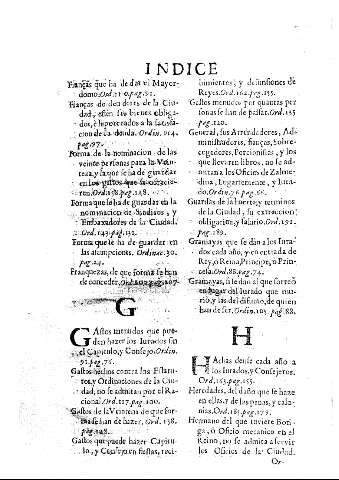 INDICE
Fianças que ha de dar el Mayor-
domo. Ord.
Fianças de deudores de la Ciu-
dad, esten sus bienes obliga-
dos, è hipotecados a la satisfa-
cion de la deuda. Ordin. 214.
pag. 97.
Forma de la nominacion de las
veinte personas para la Vein-
tena, y la que se ha de guardar
en los gastos que se ofrecie-
ren. Ord. 158. pag. 128.
Forma que se ha de guardar en la
nominacion de Sindicos, y
Embaxadores de la Ciudad.
Ord. 143. pag. 132.
Forma que se ha de guardar en
las assumpciones. Ordinac. 30.
pag. 24.
Franquezas, de que forma se han
de conceder.
G
GAstos menudos que pue-
den hazer los Jurados sin
el Capitulo, y Consejo. Ordin.
91. pag. 76.
Gastos hechos contra los Estatu-
tos, y Ordinaciones de la Ciu-
dad, no se admitan por el Ra-
cional. Ord. 117. pag. 100.
Gastos de la Veintena de que for-
ma se han de hazer, Ord. 158.
pag. 128.
Gastos que puede hazer Capitu-
lo, y Consejo en fiestas, reci-
bimientos, y defunsiones de
Reyes. Ord. 162. pag. 155.
Gastos menudos por quantas per-
sonas se han de passar. Ord. 135
pag. 120.
General, sus Arrendadores, Ad-
ministradores, fianças, Sobre-
cogedores, Porcionistas, y los
que llevaren libros, no se ad-
mitan a los Oficios de Zalme-
dina, Lugarteniente, y Jura-
do. Ordin. 76. pag. 66.
Guardas de la huerta, y terminos
de la Ciudad, su extraccion,
obligacion, y salario. Ord. 191.
pag. 189.
Gramayas que se dan a los Jura-
dos cada año, y en entrada de
Rey, ò Reina, Principe, ò Prin-
cesa. Ord. 88. pag. 74.
Gramayas, si se dan al que sorteò
en lugar del Jurado que mu-
riò, y las del difunto, de quien
han de ser. Ordin. 105. pag. 88.
H
HAchas dense cada año a
los Jurados, y Consejeros.
Ord. 163. pag. 155.
Heredades, del daño que se haze
en ellas, y de las penas, y calo-
nias. Ord. 185. pag. 179.
Hermano del que tuviere Boti-
ga, ò Oficio mecanico en el
Reino, no se admita a servir
los Oficios de la Ciudad.
Or-